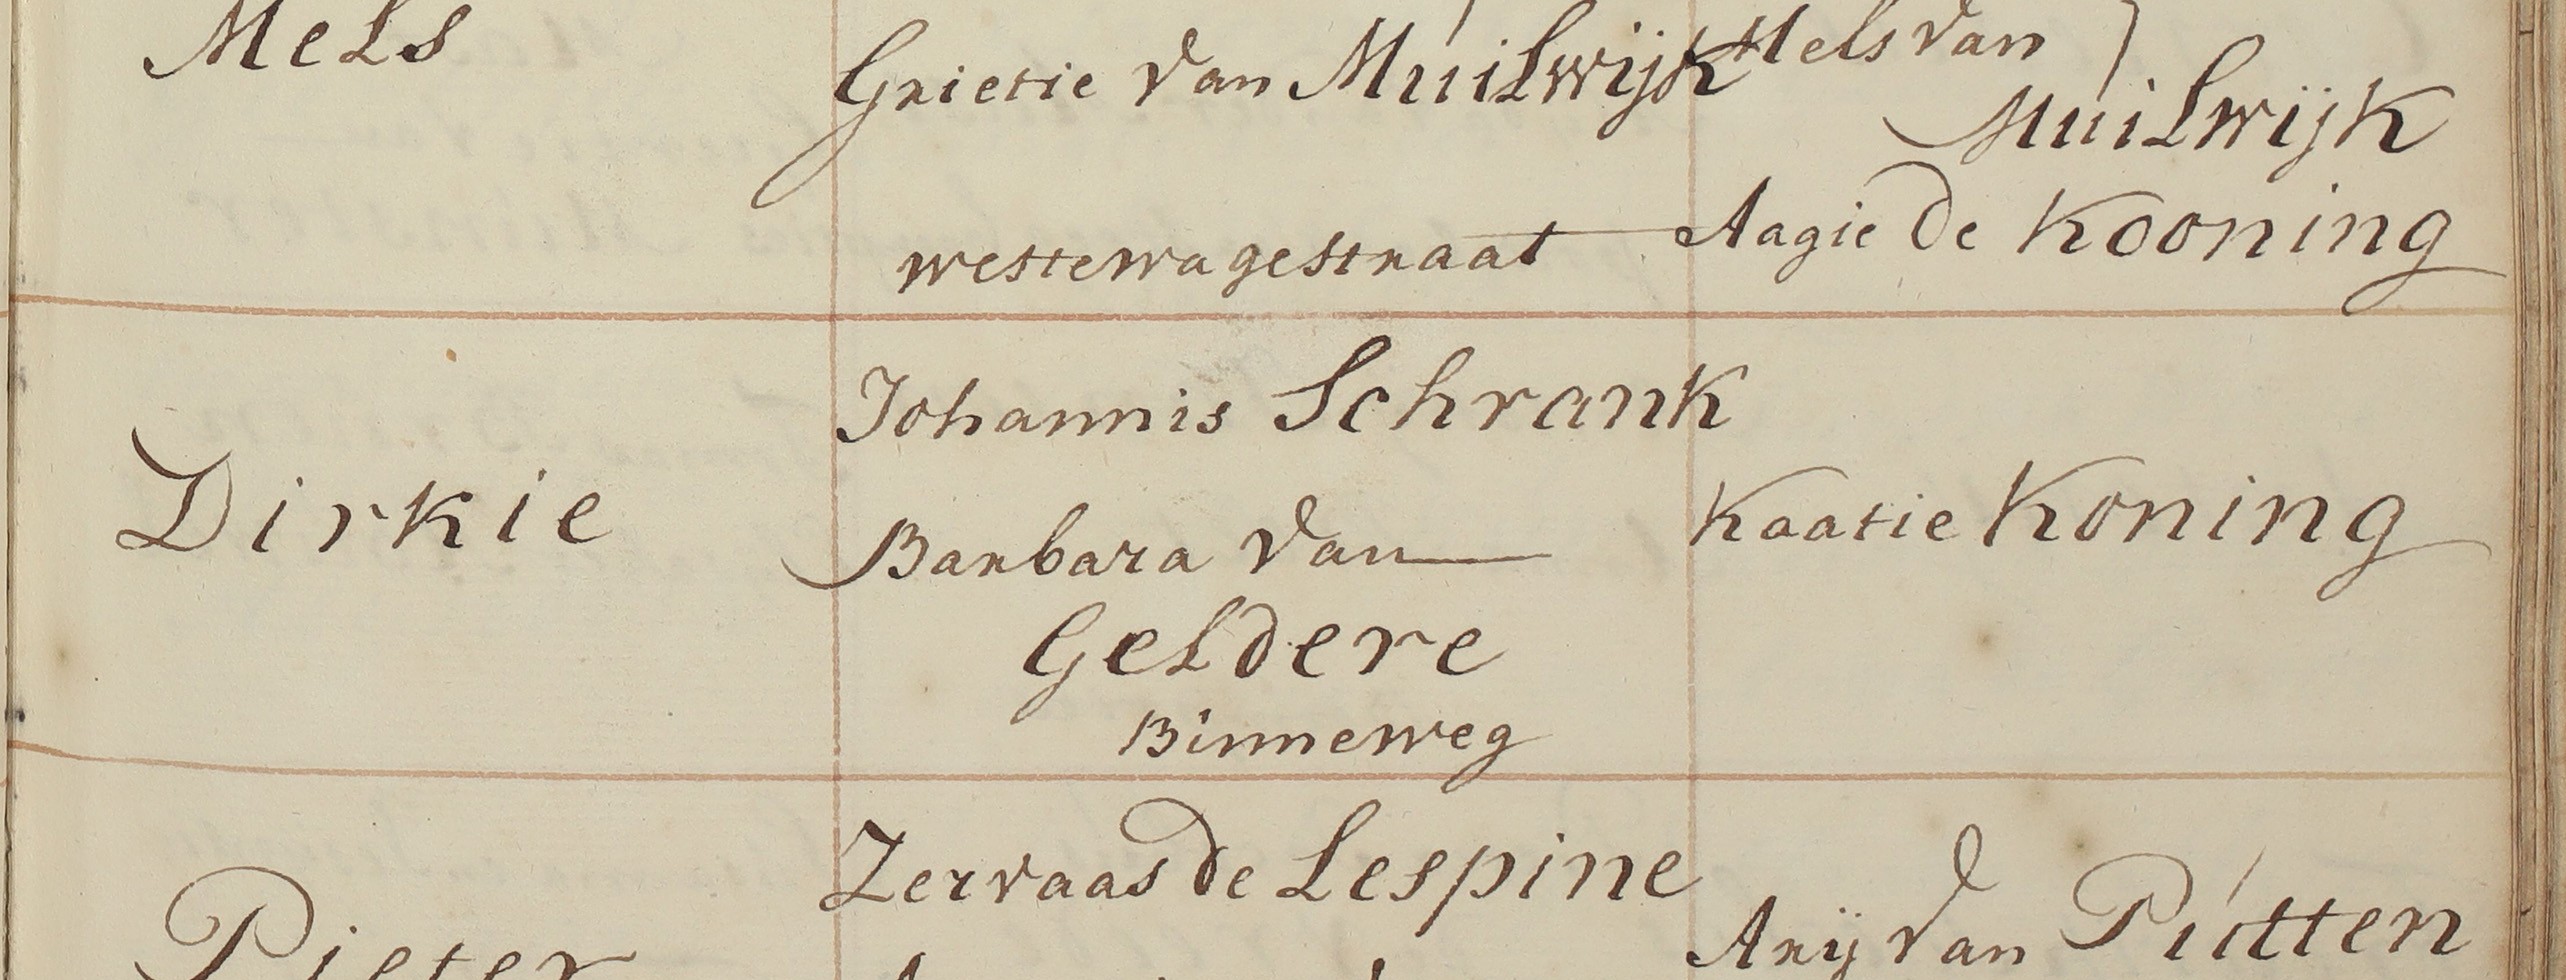 Mels
Grietie van Muilwijk
westewagestraat
Mels van
Muilwijk
Aagie de Kooning
Dirkie
Johannis Schrank
Barbara van
Geldere
Binneweg
Kaatie Koning
Pieter
Zervaas de Lespine
Arij van Putten